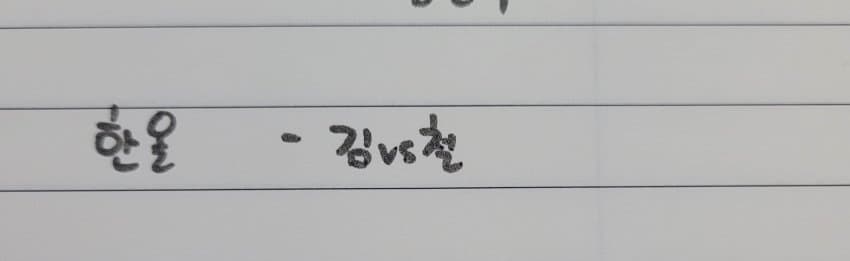 한울 - 김vs철